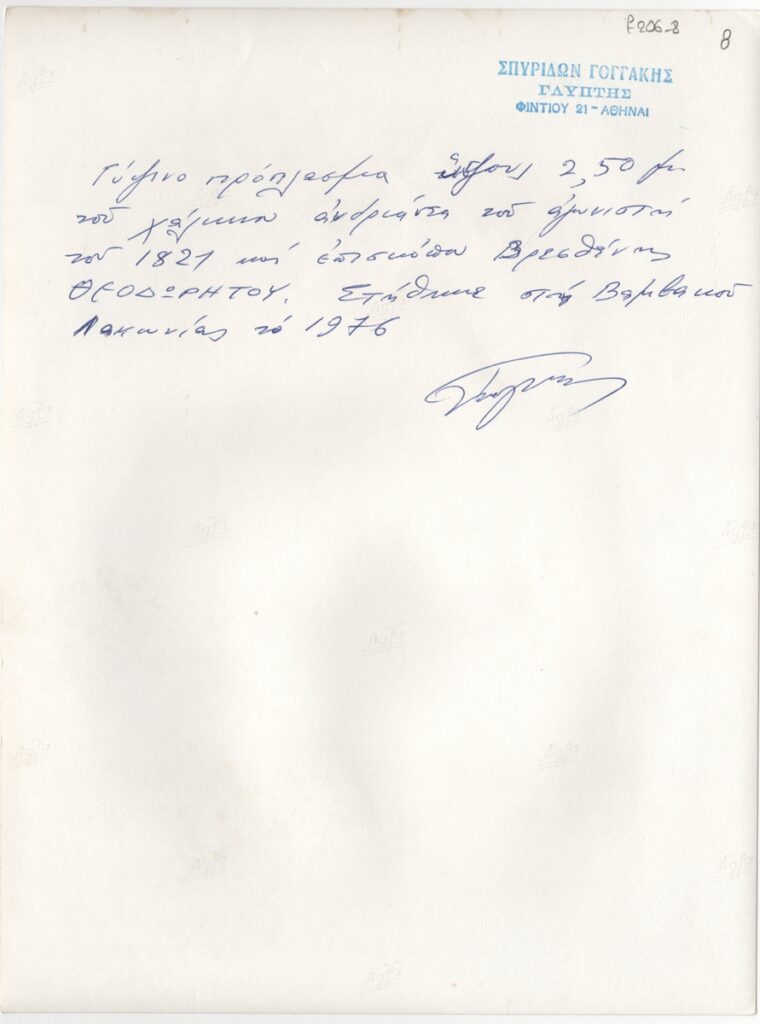 F206-8
8
ΣΠΥΡΙΔΩΝ ΓΟΓΓΑΚΗΣ
ΓΛΥΠΤΗΣ
ΦΙΝΤΙΟΥ 21 - ΑΘΗΝΑΙ
Γύψινο πρόπλασμα ὕψους 2,50 μ
τοῦ χάλκινου ἀνδριάντα τοῦ ἀγωνιστῆ
τοῦ 1821 καί ἐπισκόπου Βρεσθένης
ΘΕΟΔΩΡΗΤΟΥ. Στήθηκε στή Βαμβακοῦ
Λακωνίας τό 1976
Agfa